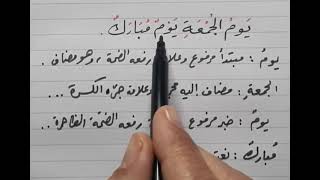 يَومُ الجُمْعَةِ يَوْمٌ مُبَارَكٌ.
يومُ : مبتدأ مرفوع وعلامة رفعه الضمة ، وهو مضاف.
الجمعةِ : مضاف إليه وعلامة جرّه الكسرة ...
يومٌ : خبر مرفوع رفعه الضمّة الظاهرة ..
مُباركٌ : نعت